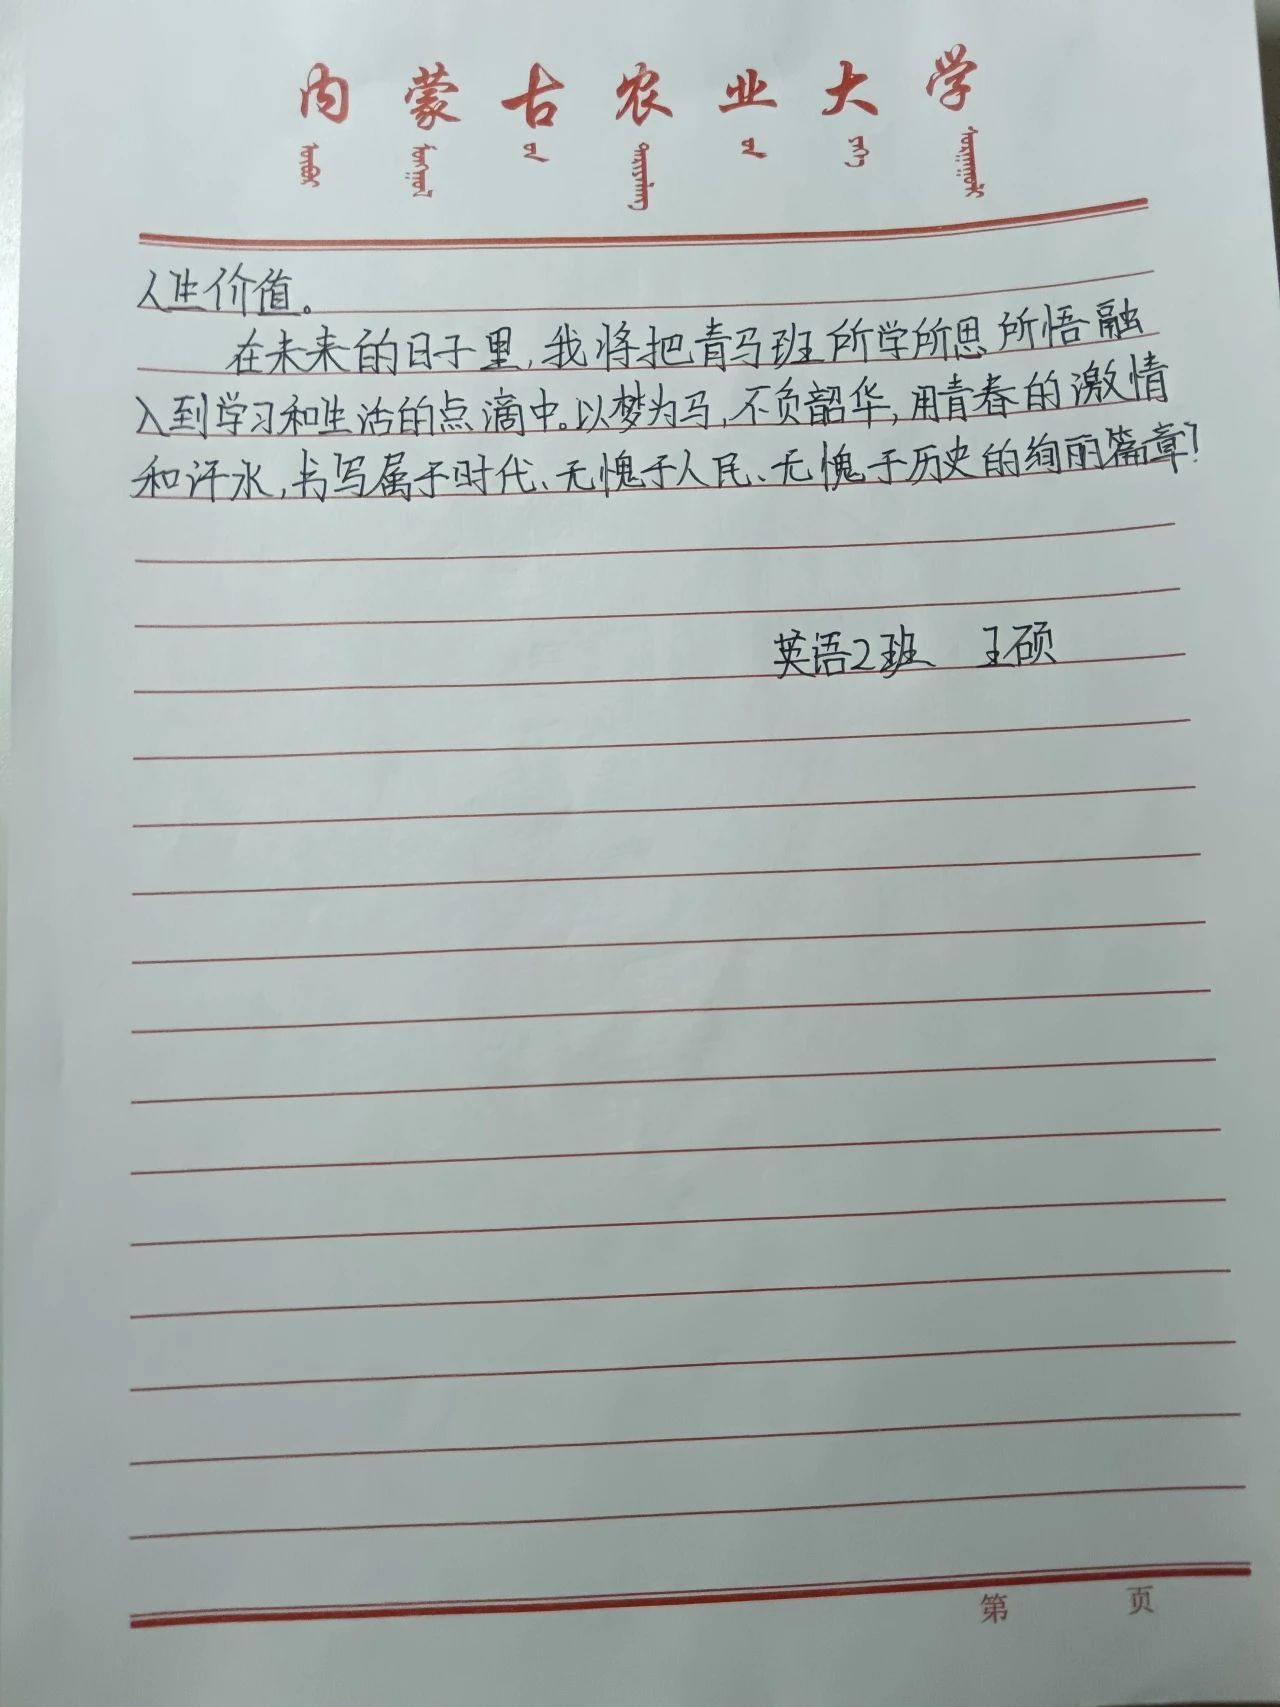 内蒙古农业大学
人生价值。
在未来的日子里,我将把青马班所学所思所悟融
入到学习和生活的点滴中。以梦为马,不负韶华,用青春的激情
和汗水,书写属于时代、无愧于人民、无愧于历史的绚丽篇章!
英语2班 王硕
第 页